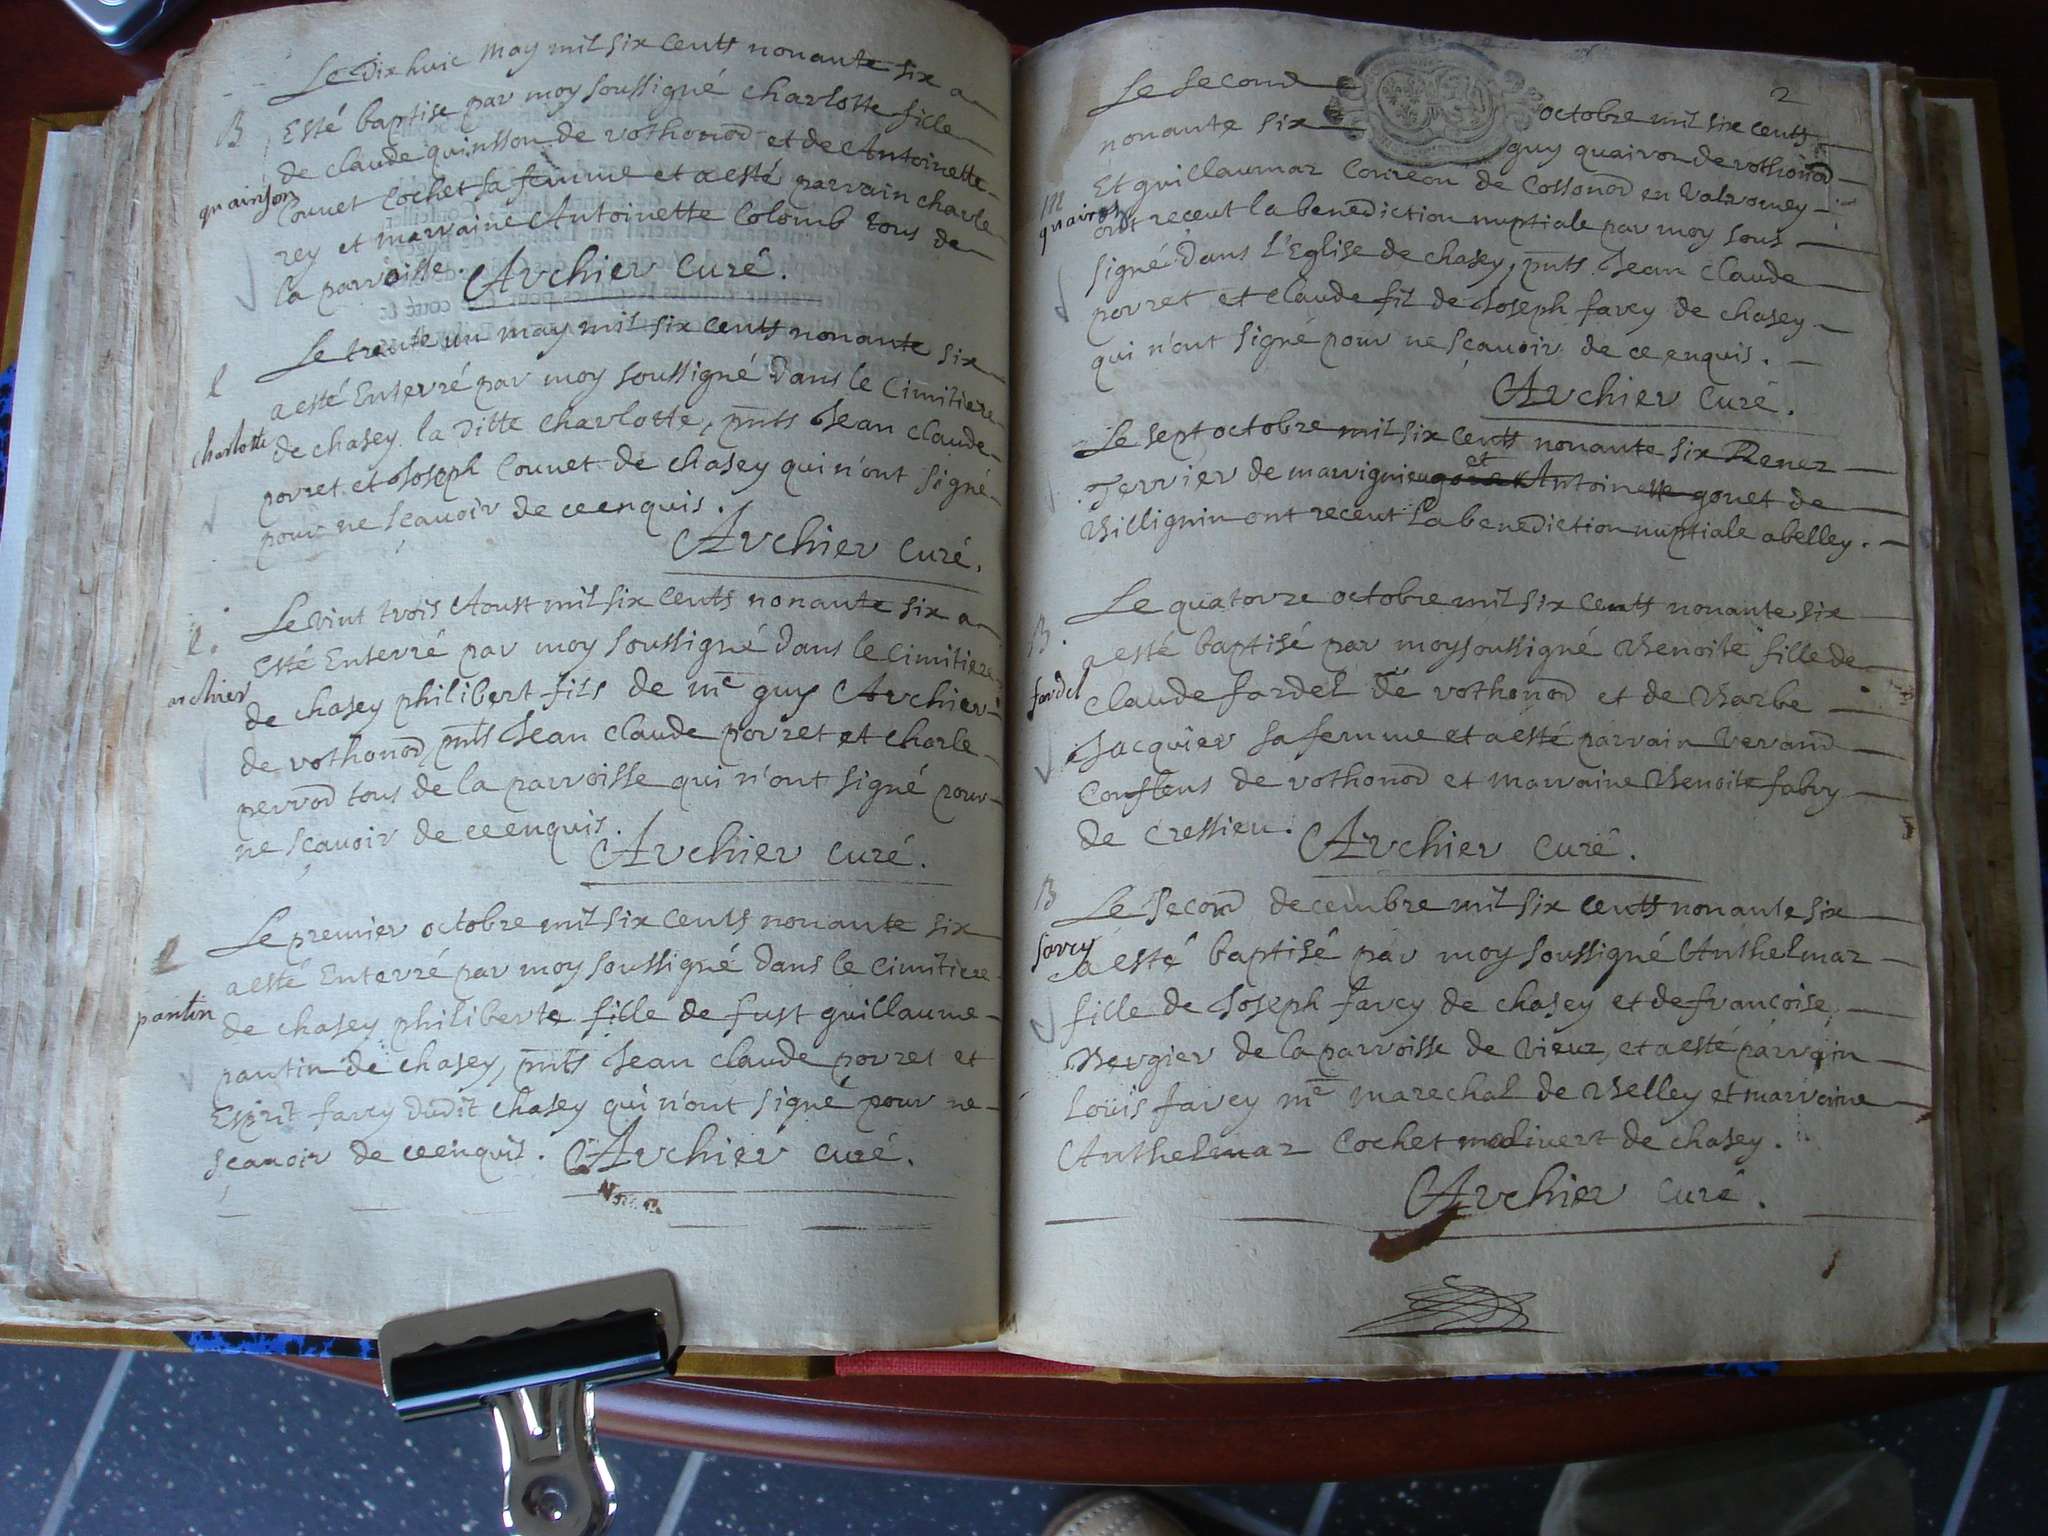 Le Dix huic may mil six cents nonante six a
B Esté baptise par moy soussigné charlotte fille
de claude quinsson de vothonod et de Antoinette
quainson Couuet Cochet sa femme et a esté parrain charle
rey et marraine Antoinette Colomb tous de
la parroisse. Archier Curé.
Le trente un may mil six cents nonante six
a esté Enterré par moy soussigné dans le Cimitiere
charlotte de chasey la ditte charlotte, pnts Jean claude
porret et Joseph Couuet de chasey qui n'ont signé
pour ne sçauoir de ce enquis.
Archier curé.
Le vint trois Aoust mil six cents nonante six a
Esté Enterré par moy soussigné dans le Cimitiere
archier de chasey philibert fils de me guy Archier
de vothonod, pnts Jean claude porret et charle
perrod tous de la parroisse qui n'ont signé pour
ne sçauoir de ce enquis.
Archier curé.
Le premier octobre mil six cents nonante six
a esté Enterré par moy soussigné dans le cimitiere
pantin de chasey philiberte fille de fust guillaume
pantin de chasey, pnts Jean claude porret et
Esprit favey dudit chasey qui n'ont signé pour ne
sçauoir de ce enquis. Archier curé.
2
Le second octobre mil six cents
nonante six guy quairon de vothonod
m Et guillaumaz Conreou de Cossonod en Valromey
quairon ont receut la benediction nuptiale par moy sous
signé dans L'Eglise de chasey, pnts Jean Claude
porret et claude fil de Joseph favey de chasey
qui n'ont signé pour ne sçauoir de ce enquis.
Archier Curé.
Le sept octobre mil six cents nonante six Renez
Terrier de marrignieu et Antoinette gouet de
Billignin ont receut La benediction nuptiale a belley.
Le quatorze octobre mil six cents nonante six
B. a esté baptisé par moy soussigné Benoite fille de
fardel Claude fardel de vothonod et de Barbe
Jacquier sa femme et a esté parrain Verand
Conflens de vothonod et marraine Benoite fabry
de Cressieu. Archier curé.
B Le Second decembre mil six cents nonante six
favey a esté baptisé par moy soussigné Anthelmaz
fille de Joseph favey de chasey et de francoise
Bergier de la parroisse de Vieux, et a esté parrain
Loüis favey me marechal de Belley et marraine
Anthelmaz Cochet molivert de chasey.
Archier curé.